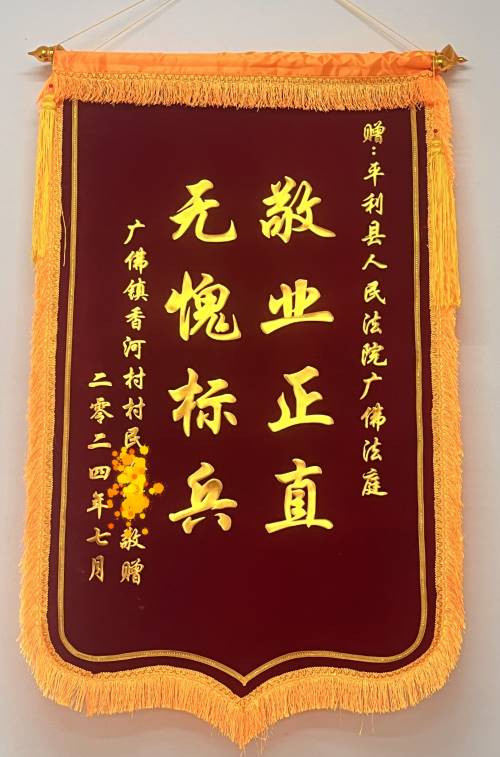 赠：平利县人民法院广佛法庭
敬业正直
无愧标兵
广佛镇香河村村民敬赠
二零二四年七月